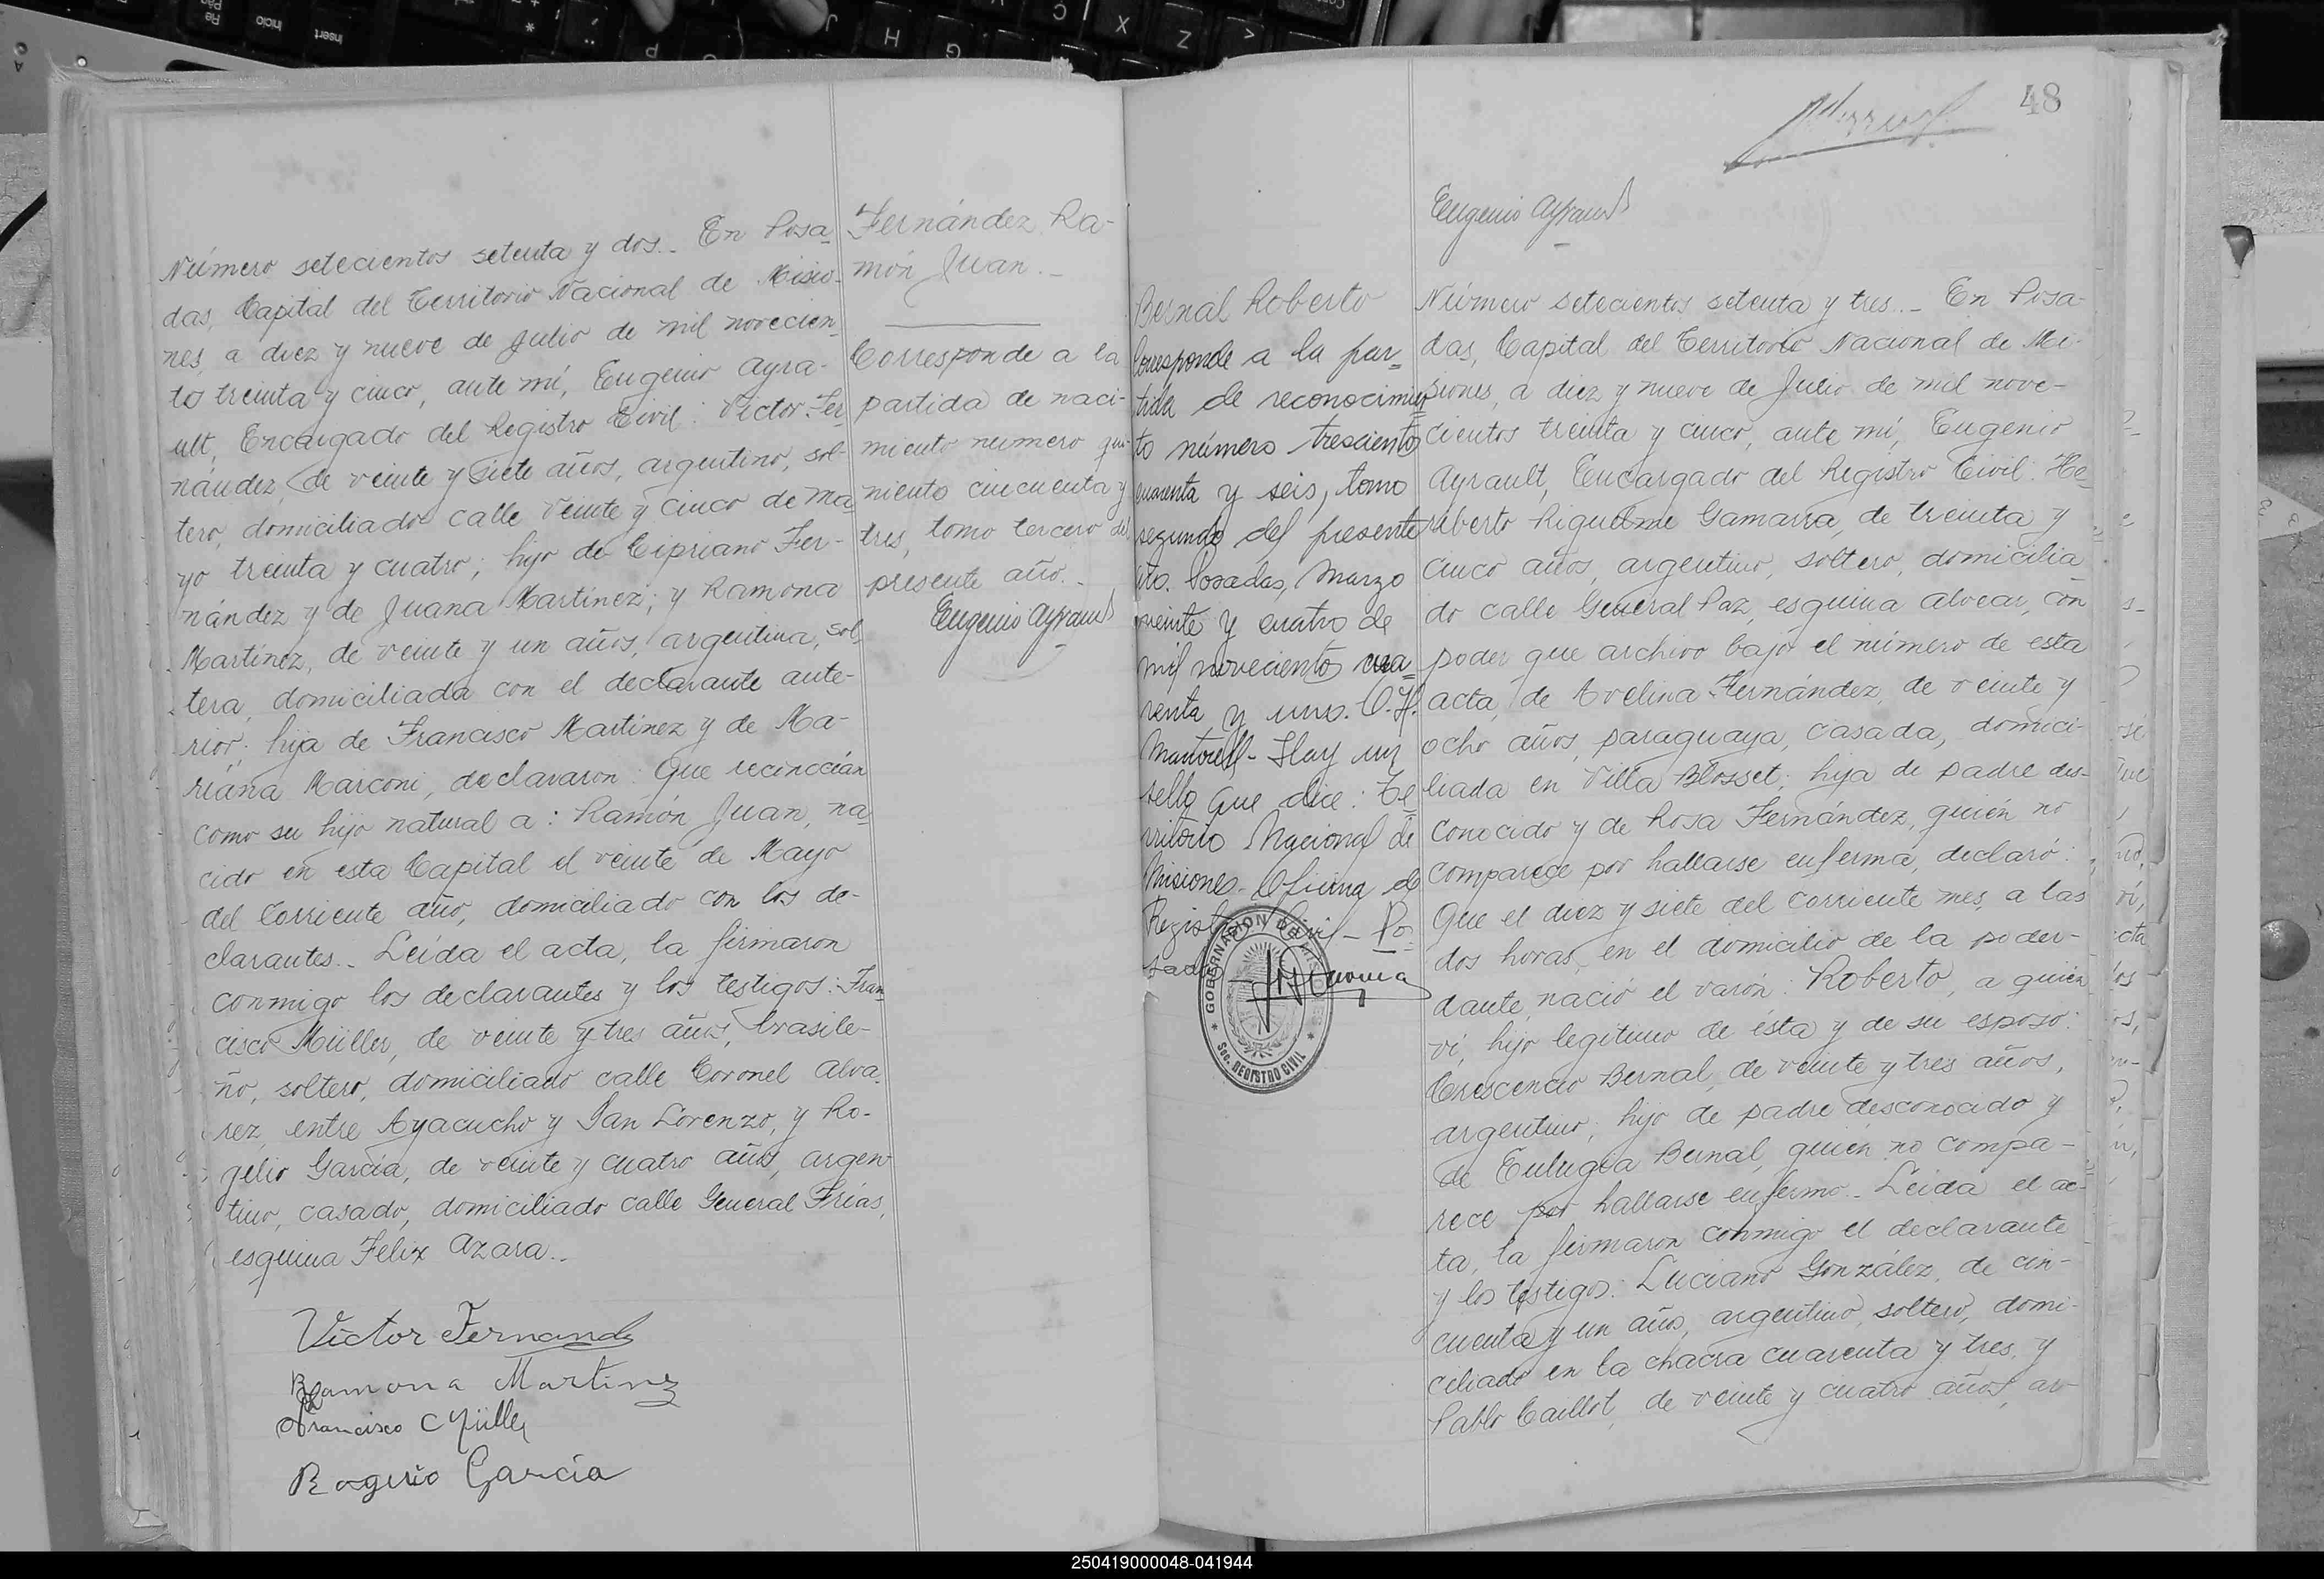 Número setecientos setenta y dos.- En Posa-
das, Capital del Territorio Nacional de Misio-
nes, a diez y nueve de Julio de mil novecien-
tos treinta y cinco, ante mí, Eugenio Ayra-
ult, Encargado del Registro Civil: Victor Fer-
nández, de veinte y siete años, argentino, sol-
tero, domiciliado calle Veinte y cinco de Ma-
yo treinta y cuatro; hijo de Cipriano Fer-
nández y de Juana Martínez; y Ramona
Martínez, de veinte y un años, argentina, sol-
tera, domiciliada con el declarante ante-
rior; hija de Francisco Martínez y de Ma-
riana Marconi, declararon: Que reconocían
como su hijo natural a: Ramón Juan, na-
cido en esta Capital el veinte de Mayo
del corriente año, domiciliado con los de-
clarantes.- Leída el acta, la firmaron
conmigo los declarantes y los testigos: Fran-
cisco Müller, de veinte y tres años, brasile-
ño, soltero, domiciliado calle Coronel Alva-
rez, entre Ayacucho y San Lorenzo, y Ro-
gelio García, de veinte y cuatro años, argen-
tino, casado, domiciliado calle General Frías,
esquina Felix Azara.-
Victor Fernandz
Ramona Martinez
Francisco Müller
Rogerio García
Fernández Ra-
món Juan.-
Corresponde a la
partida de naci-
miento numero qui-
niento cincuenta y
tres, tomo tercero del
presente año.-
Eugenio Ayrault
48
Eugenio Ayrault
Bernal Roberto
Corresponde a la par-
tida de reconocimien-
to número trescientos
cuarenta y seis, tomo
segundo del presente
año. Posadas, Marzo
veinte y cuatro de
mil novecientos cua-
renta y uno. O.H.
Martorell - Hay un
sello que dice: Te-
rritorio Nacional de
Misiones - Oficina de
Registro Civil - Po-
sadas
GOBERNACION DE MISIONES
Sec. REGISTRO CIVIL
Número setecientos setenta y tres.- En Posa-
das, Capital del Territorio Nacional de Mi-
siones, a diez y nueve de Julio de mil nove-
cientos treinta y cinco, ante mí, Eugenio
Ayrault, Encargado del Registro Civil: He-
riberto Riquelme Gamarra, de treinta y
cinco años, argentino, soltero, domicilia-
do calle General Paz, esquina Alvear, con
poder que archivo bajo el número de esta
acta, de Avelina Fernández, de veinte y
ocho años, paraguaya, casada, domici-
liada en Villa Blosset; hija de padre des-
conocido y de Rosa Fernández, quién no
comparece por hallarse enferma, declaró:
Que el diez y siete del corriente mes, a las
dos horas, en el domicilio de la poder-
dante, nació el varón: Roberto, a quién
ví, hijo legítimo de ésta y de su esposo:
Crescencio Bernal, de veinte y tres años,
argentino; hijo de padre desconocido y
de Eulogia Bernal, quién no compa-
rece por hallarse enfermo.- Leída el ac-
ta, la firmaron conmigo el declarante
y los testigos: Luciano González, de cin-
cuenta y un años, argentino, soltero, domi-
ciliado en la chacra cuarenta y tres, y
Pablo Caillot, de veinte y cuatro años, ar-
250419000048-041944